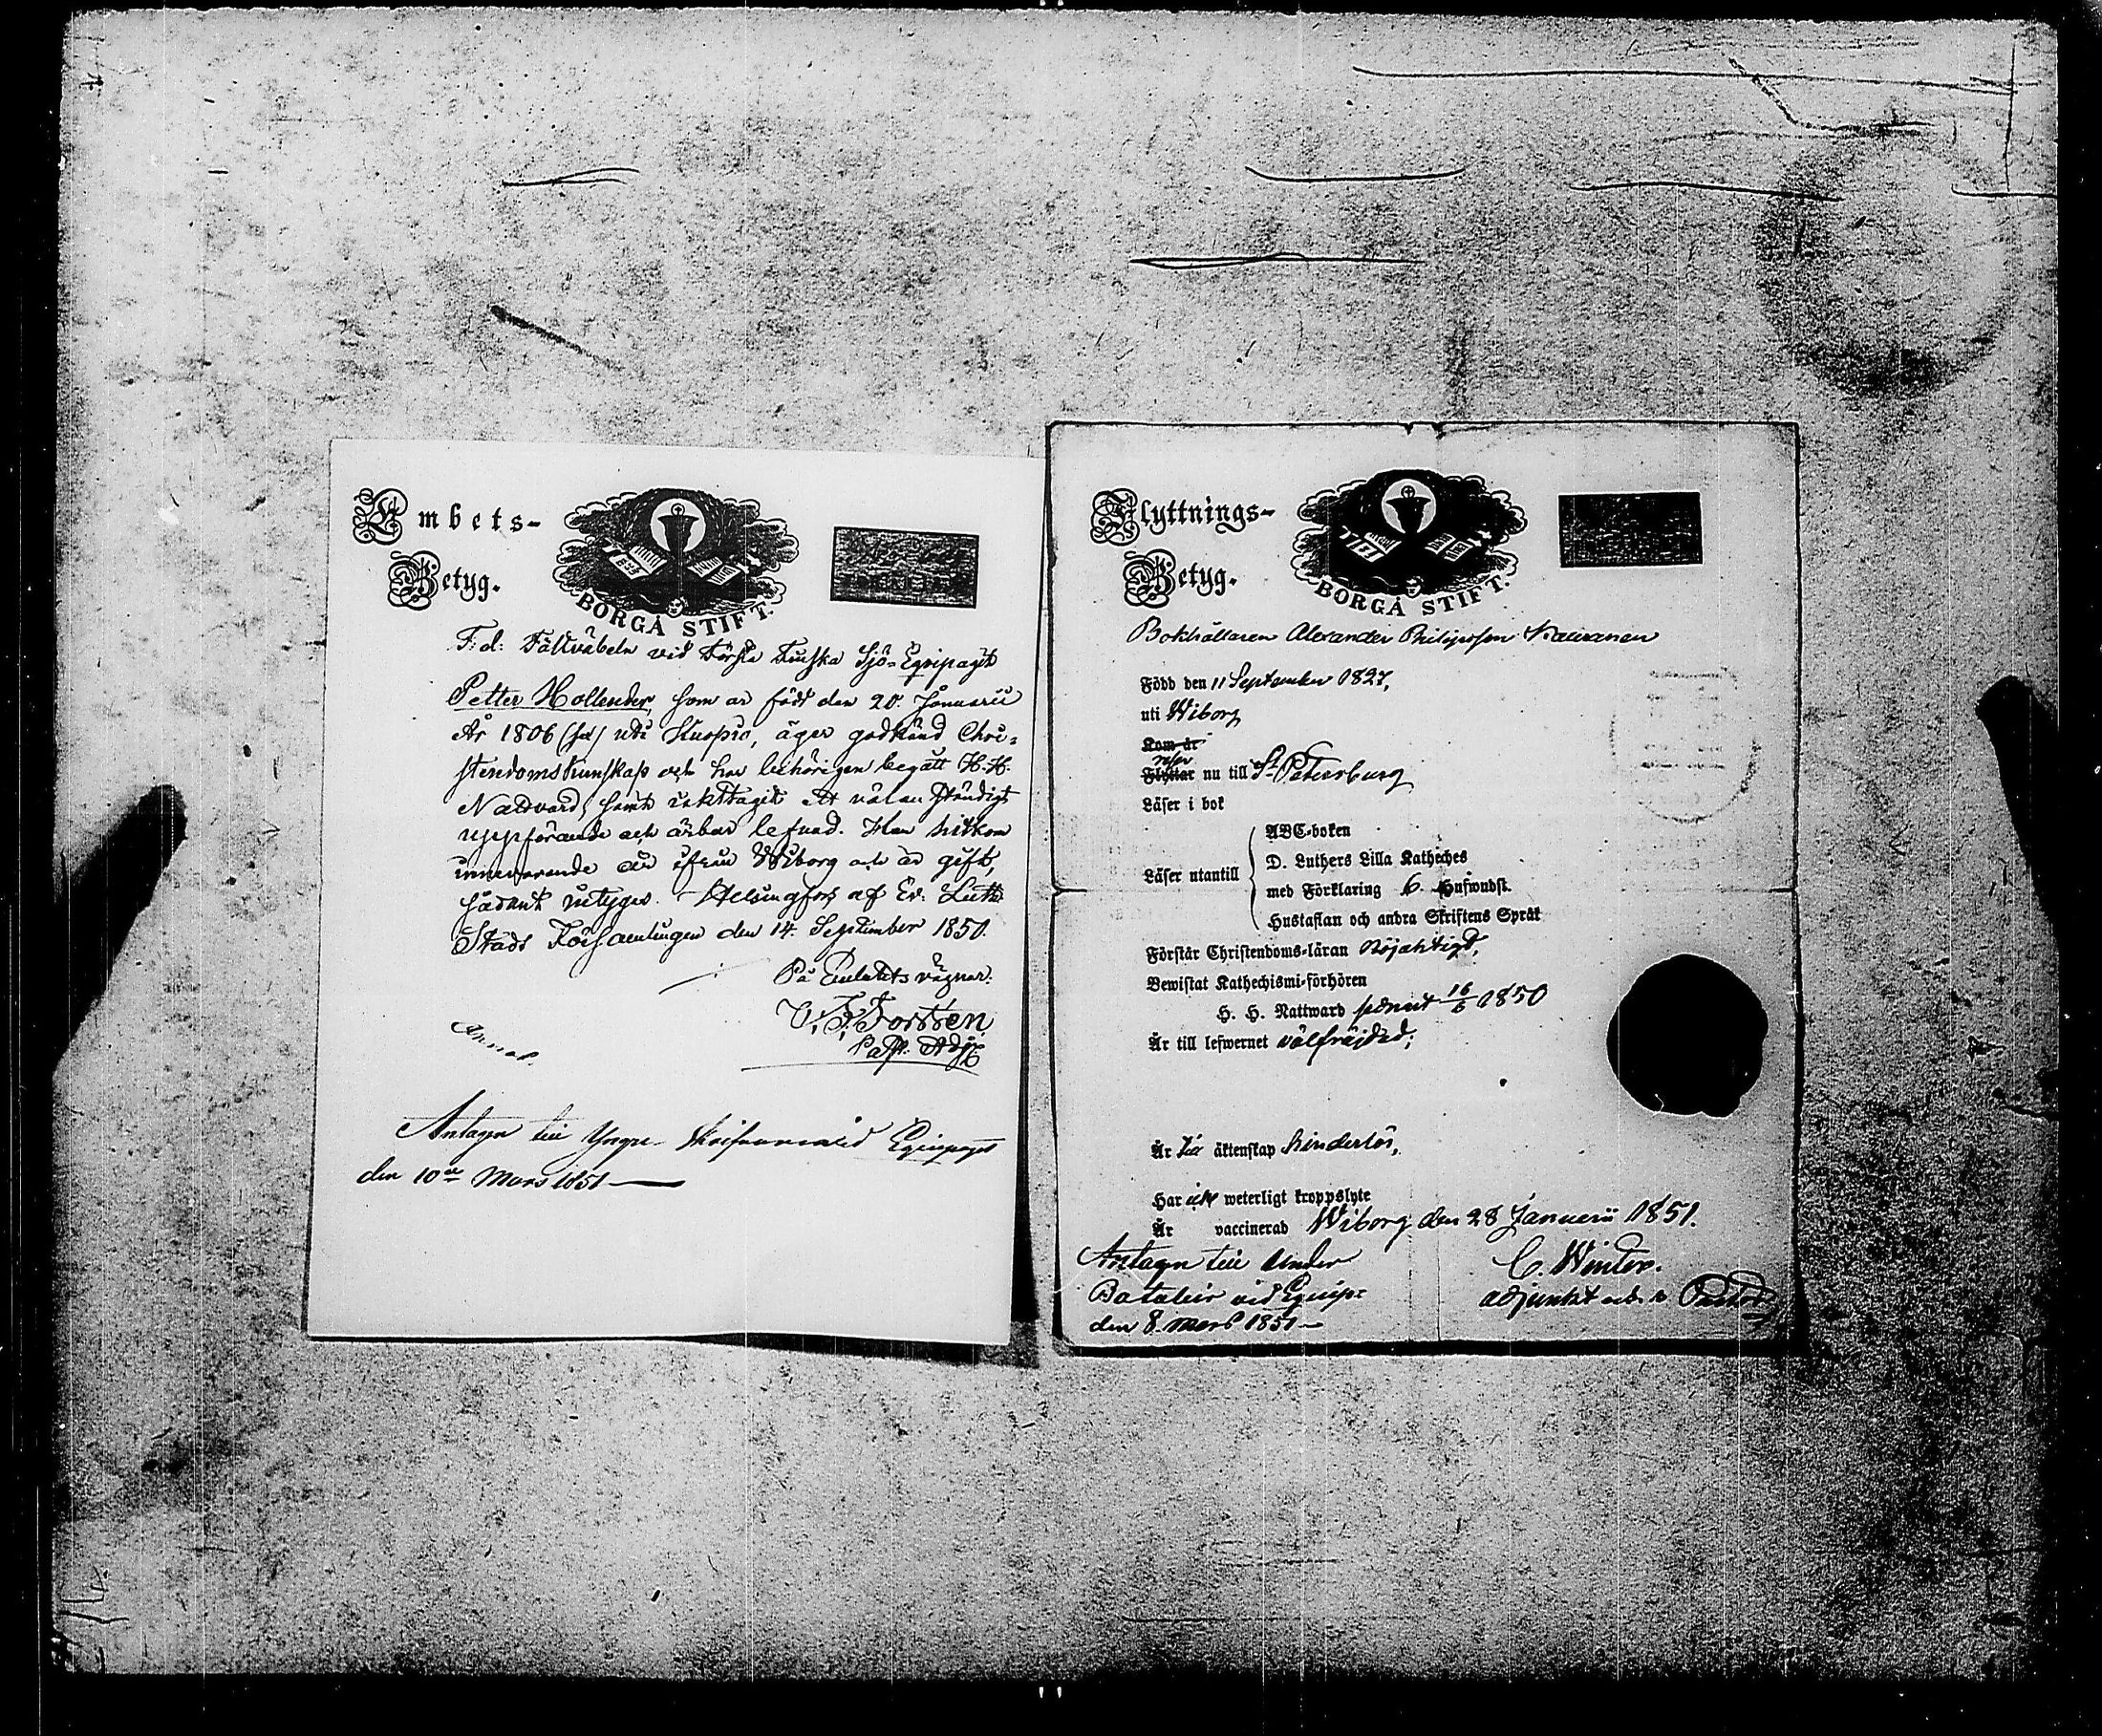 Embets-
Betyg.
BORGÅ STIFT.
F. d. Fältväbeln vid Första Finska Sjö-Equipaget
Petter Hollender, som är född den 20. Januarii
År 1806 (sex) uti Kuopio, äger godkänd Chri-
stendomskunskap och har behörigen begått H. H.
Nattvard, samt iakttagit ett välanständigt
uppförande och ärbar lefnad. Han hitkom
innevarande år ifrån Wiborg och är gift,
sådant intygas. Helsingfors af Ev. Luth.
Stads Församlingen den 14. September 1850.
På Embetets vägnar.
C. F. Forssen
Past. Adj.
Antagen till Yngre Skrifvare vid Equipaget
den 10de Mars 1851
Flyttnings-
Betyg.
BORGÅ STIFT.
Bokhållaren Alexander Philipsson Kauranen
Född den 11 September 1827,
uti Wiborg
Kom år
reser
Flyttar nu till St. Petersburg
Läser i bok
ABC-boken
D. Luthers Lilla Katheches
Läser utantill
med Förklaring 6 Hufwudst.
Hustaflan och andra Skriftens Språk
Förstår Christendoms-läran nöjaktigt,
Bewistat Kathechismi-förhören
H. H. Nattward senast 16/6 1850
Är till lefwernet välfräjdad;
Är till äktenskap hinderlös,
Har icke weterligt kroppslyte
Är vaccinerad Wiborg den 28 Januarii 1851.
C. Winter.
adjunkt och v. Pastor
Antagen till Under
Batalör vid Equip:
den 8. Mars 1851